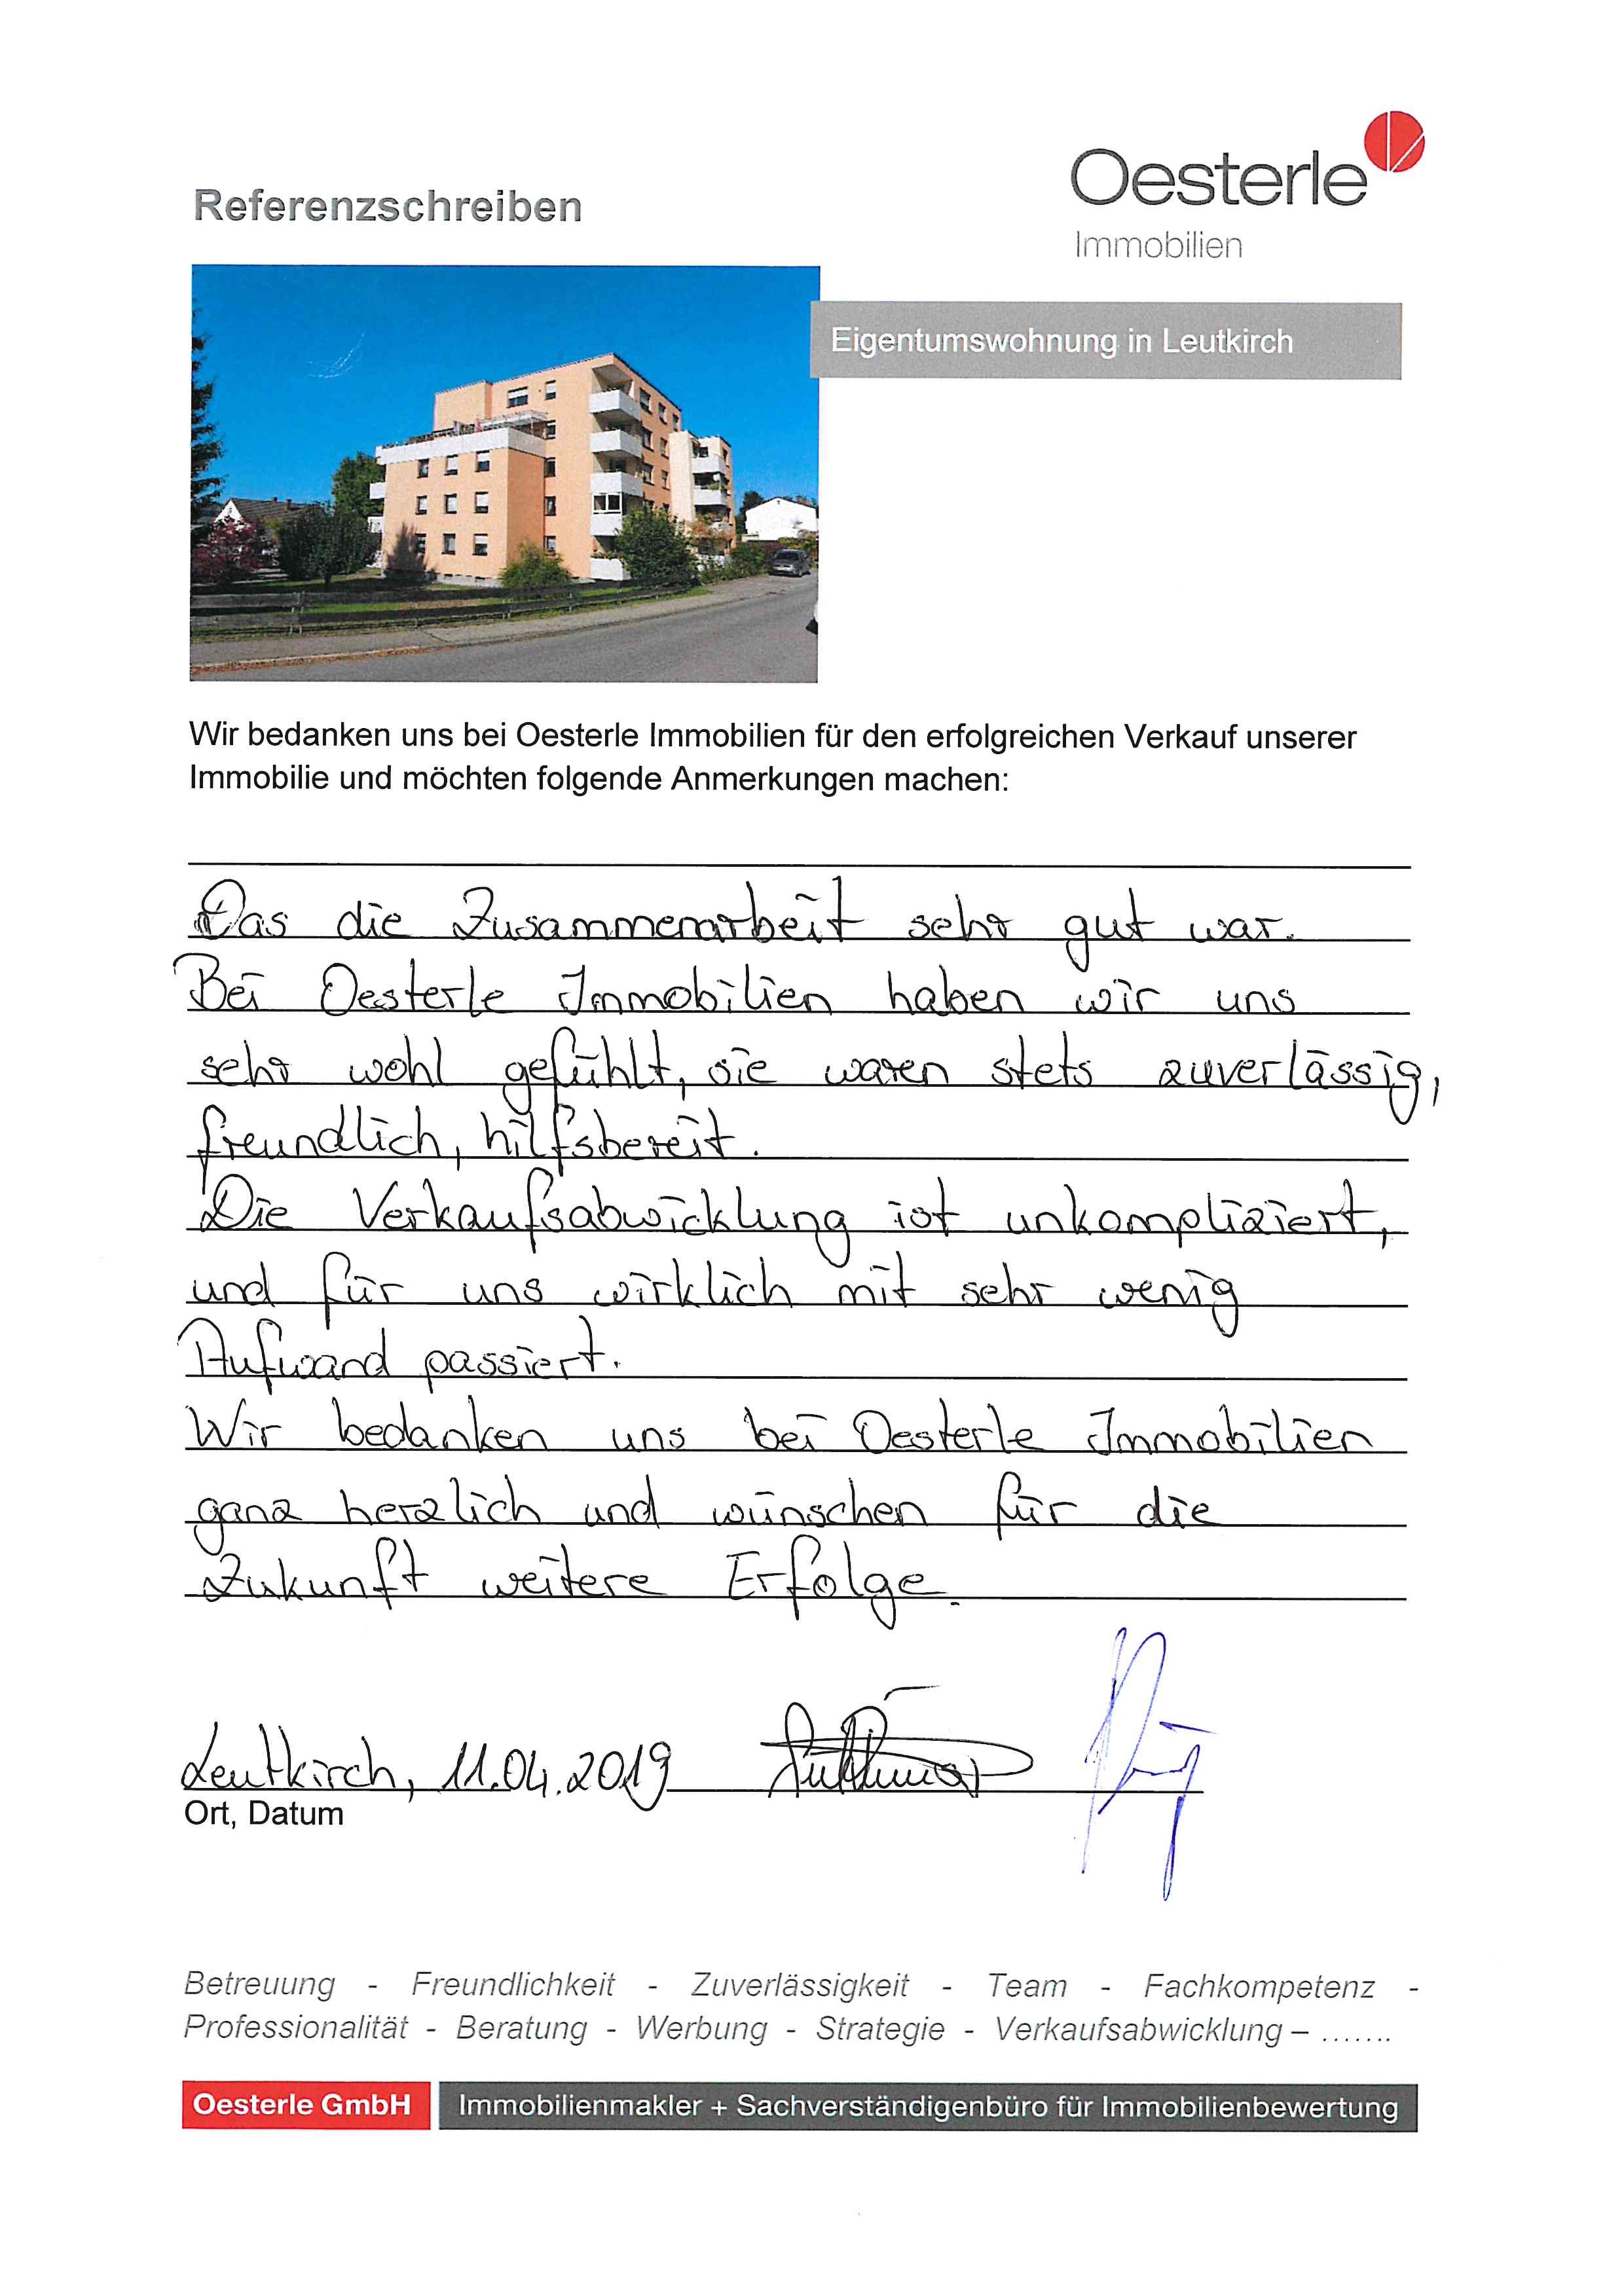 Referenzschreiben
Oesterle
Immobilien
Eigentumswohnung in Leutkirch
Wir bedanken uns bei Oesterle Immobilien für den erfolgreichen Verkauf unserer
Immobilie und möchten folgende Anmerkungen machen:
Das die Zusammenarbeit sehr gut war.
Bei Oesterle Immobilien haben wir uns
sehr wohl gefühlt, sie waren stets zuverlässig,
freundlich, hilfsbereit.
Die Verkaufsabwicklung ist unkompliziert,
und für uns wirklich mit sehr wenig
Aufwand passiert.
Wir bedanken uns bei Oesterle Immobilien
ganz herzlich und wünschen für die
Zukunft weitere Erfolge.
Leutkirch, 11.04.2019
Ort, Datum
Betreuung - Freundlichkeit - Zuverlässigkeit - Team - Fachkompetenz -
Professionalität - Beratung - Werbung - Strategie - Verkaufsabwicklung – .......
Oesterle GmbH Immobilienmakler + Sachverständigenbüro für Immobilienbewertung